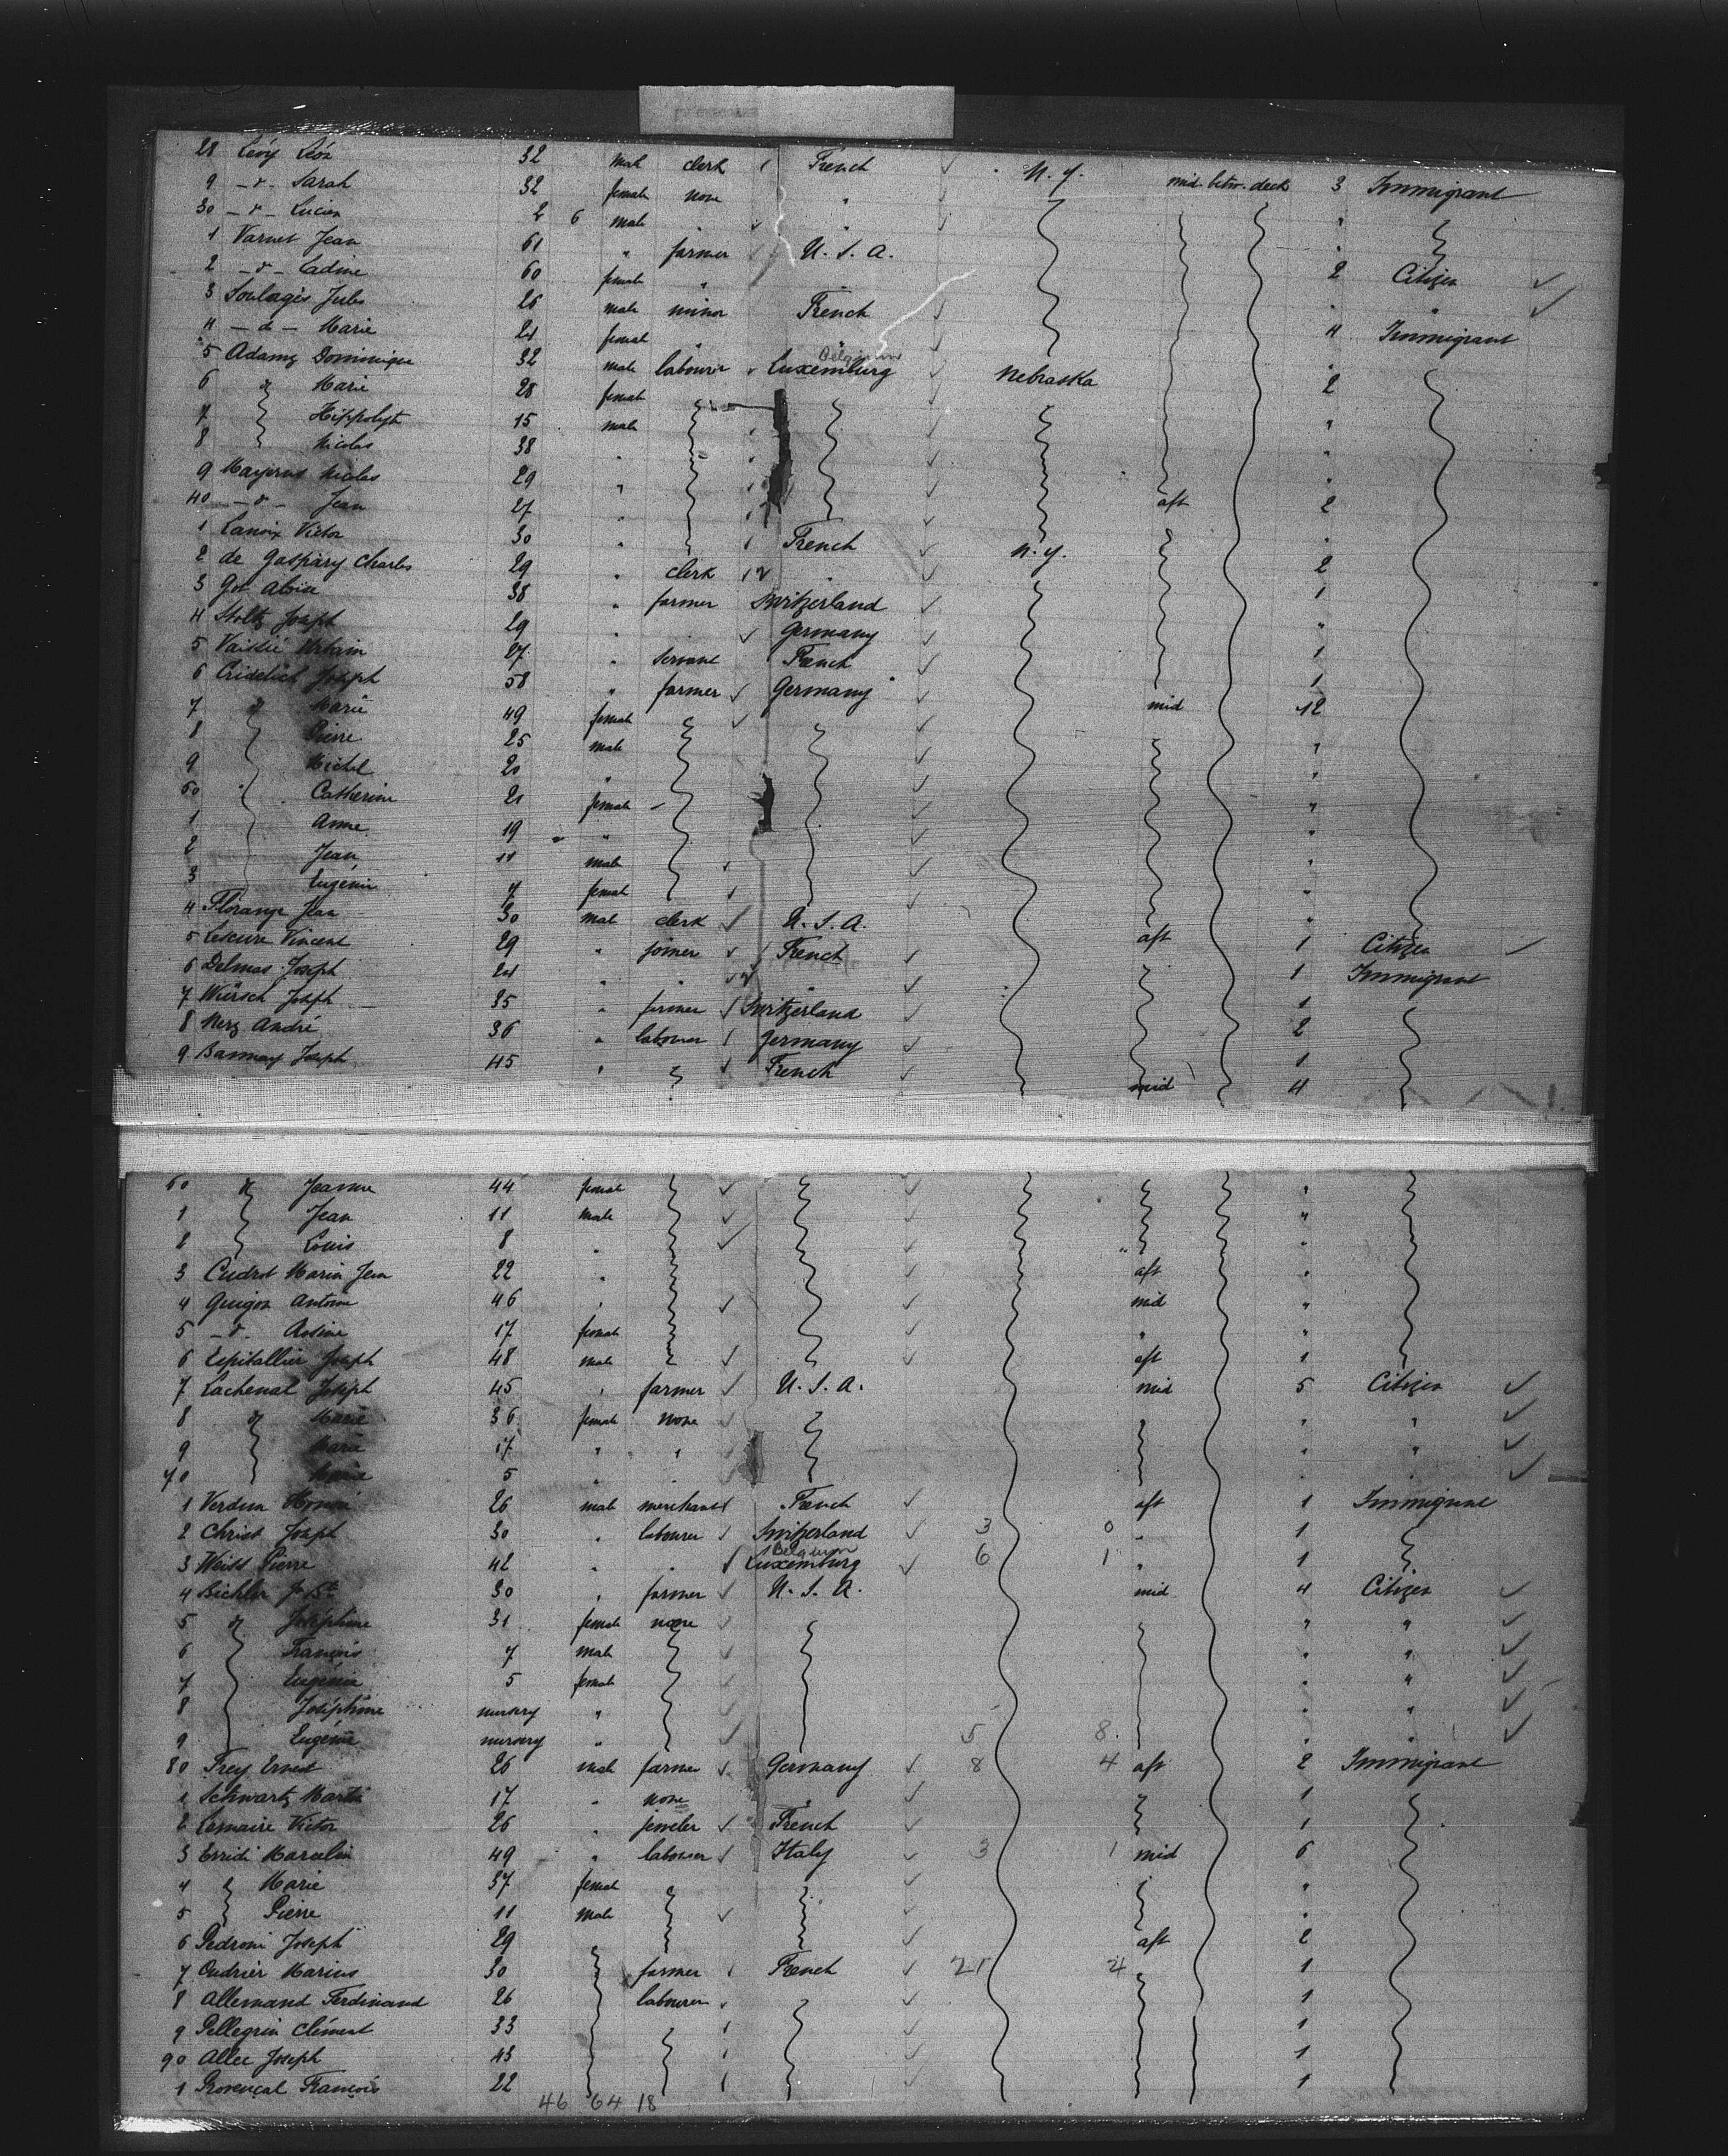 28 Lévy Léon 32 male clerk French N. Y. mid. betw. deck 3 Immigrant
9 -d- Sarah 32 female none "
30 -d- Lucien 2 6 male " "
1 Varnet Jean 61 " farmer U. S. A. 2 Citizen
2 -d- 60 female " " "
3 Soulagés Jules 26 male minor French 4 Immigrant
4 -d- Marie 24 female " "
5 Adamy Dominique 32 male labourer Belgium Luxemburg Nebraska 2
6 d Marie 28 female "
7 Hippolyt 15 male "
8 Nicolas 38 " "
9 Mayerus Nicolas 29 " aft 2
40 -d- Jean 27 " "
1 Lanoix Victor 30 " French N. Y. 2
2 de Gaspary Charles 29 " clerk " 1
3 Got 38 " farmer Switzerland "
4 Stoltz Joseph 29 " " Germany 1
5 Urbain 27 " servant French 1
6 Joseph 58 " farmer Germany mid 12
7 d Marie 49 female "
8 Pierre 25 male "
9 Michel 20 " "
50 Catherine 21 female "
1 Anne 19 " "
2 Jean 11 male "
3 Eugénie 7 female "
4 Florange Jean 30 male clerk U. S. A. aft 1 Citizen
5 Lescure Vincent 29 " joiner French 1 Immigrant
6 Delmas Joseph 24 " " " 1
7 Wiersch Joseph 35 " farmer Switzerland 2
8 Merz André 36 " labourer Germany 1
9 Joseph 45 " French mid 4
60 d Jeanne 44 female "
1 Jean 11 male "
2 Louis 8 " "
3 Cudrot Marin Jean 22 " aft "
4 Guigon Antoine 46 " mid "
5 -d- Rosine 17 female " "
6 Espitallier Joseph 48 male aft 1
7 Lachenal Joseph 45 " farmer U. S. A. mid 5 Citizen
8 d Marie 36 female none " "
9 Marie 17 " " " "
70 Marie 5 " " " "
1 Verdun 26 male merchant French aft 1 Immigrant
2 Christ Joseph 30 " labourer Switzerland 3 0 " 1
3 Weiss Pierre 42 " " Belgium Luxemburg 6 1 " 1
4 Bichler J. Bte 30 " farmer U. S. A. mid 4 Citizen
5 d Joséphine 31 female none " "
6 François 7 male " "
7 Eugénie 5 female " "
8 Joséphine nursery " " "
9 Eugénie nursery " 5 8 " "
80 Frey Ernest 26 male farmer Germany 8 4 aft 2 Immigrant
1 Schwartz Martin 17 " none " 1
2 Lemaire Victor 26 " jeweler French 1
3 Marcelin 49 " labourer Italy 3 1 mid 6
4 d Marie 37 female "
5 Pierre 11 male "
6 Pedroni Joseph 29 aft 2
7 Oudrier Marius 30 farmer French 21 4 1
8 Allemand Ferdinand 26 labourer 1
9 Pellegrin Clément 33 1
90 Allec Joseph 43 1
1 Provençal François 22 1
46 64 18